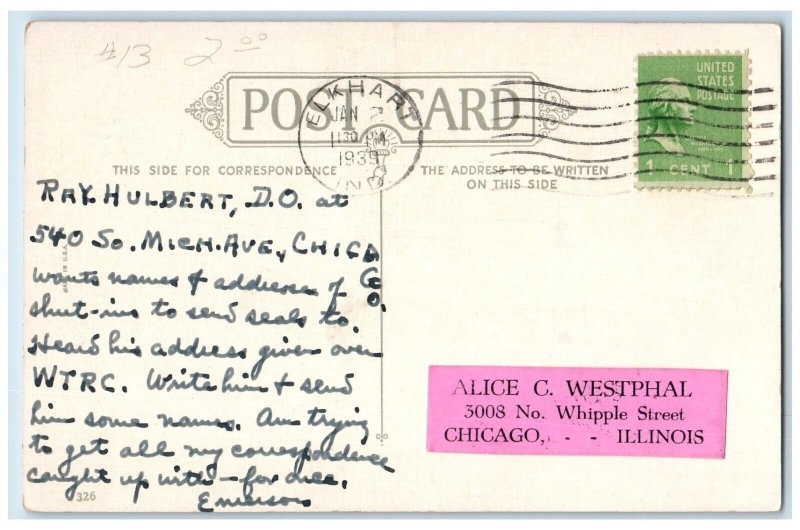 413 2.00
POST CARD
ELKHART
JAN 2
1130 PM
1939
IND
UNITED
STATES
POSTAGE
1 CENT 1
THIS SIDE FOR CORRESPONDENCE
THE ADDRESS TO BE WRITTEN
ON THIS SIDE
RAY HULBERT, D.O. at
540 SO. MICH. AVE., CHICAGO.
wants names & addresses of
shut-ins to send seals to.
Heard his address given over
WTRC. Write him & send
him some names. Am trying
to get all my correspondence
caught up with - for once.
Emerson
326
ALICE C. WESTPHAL
3008 No. Whipple Street
CHICAGO, - - ILLINOIS